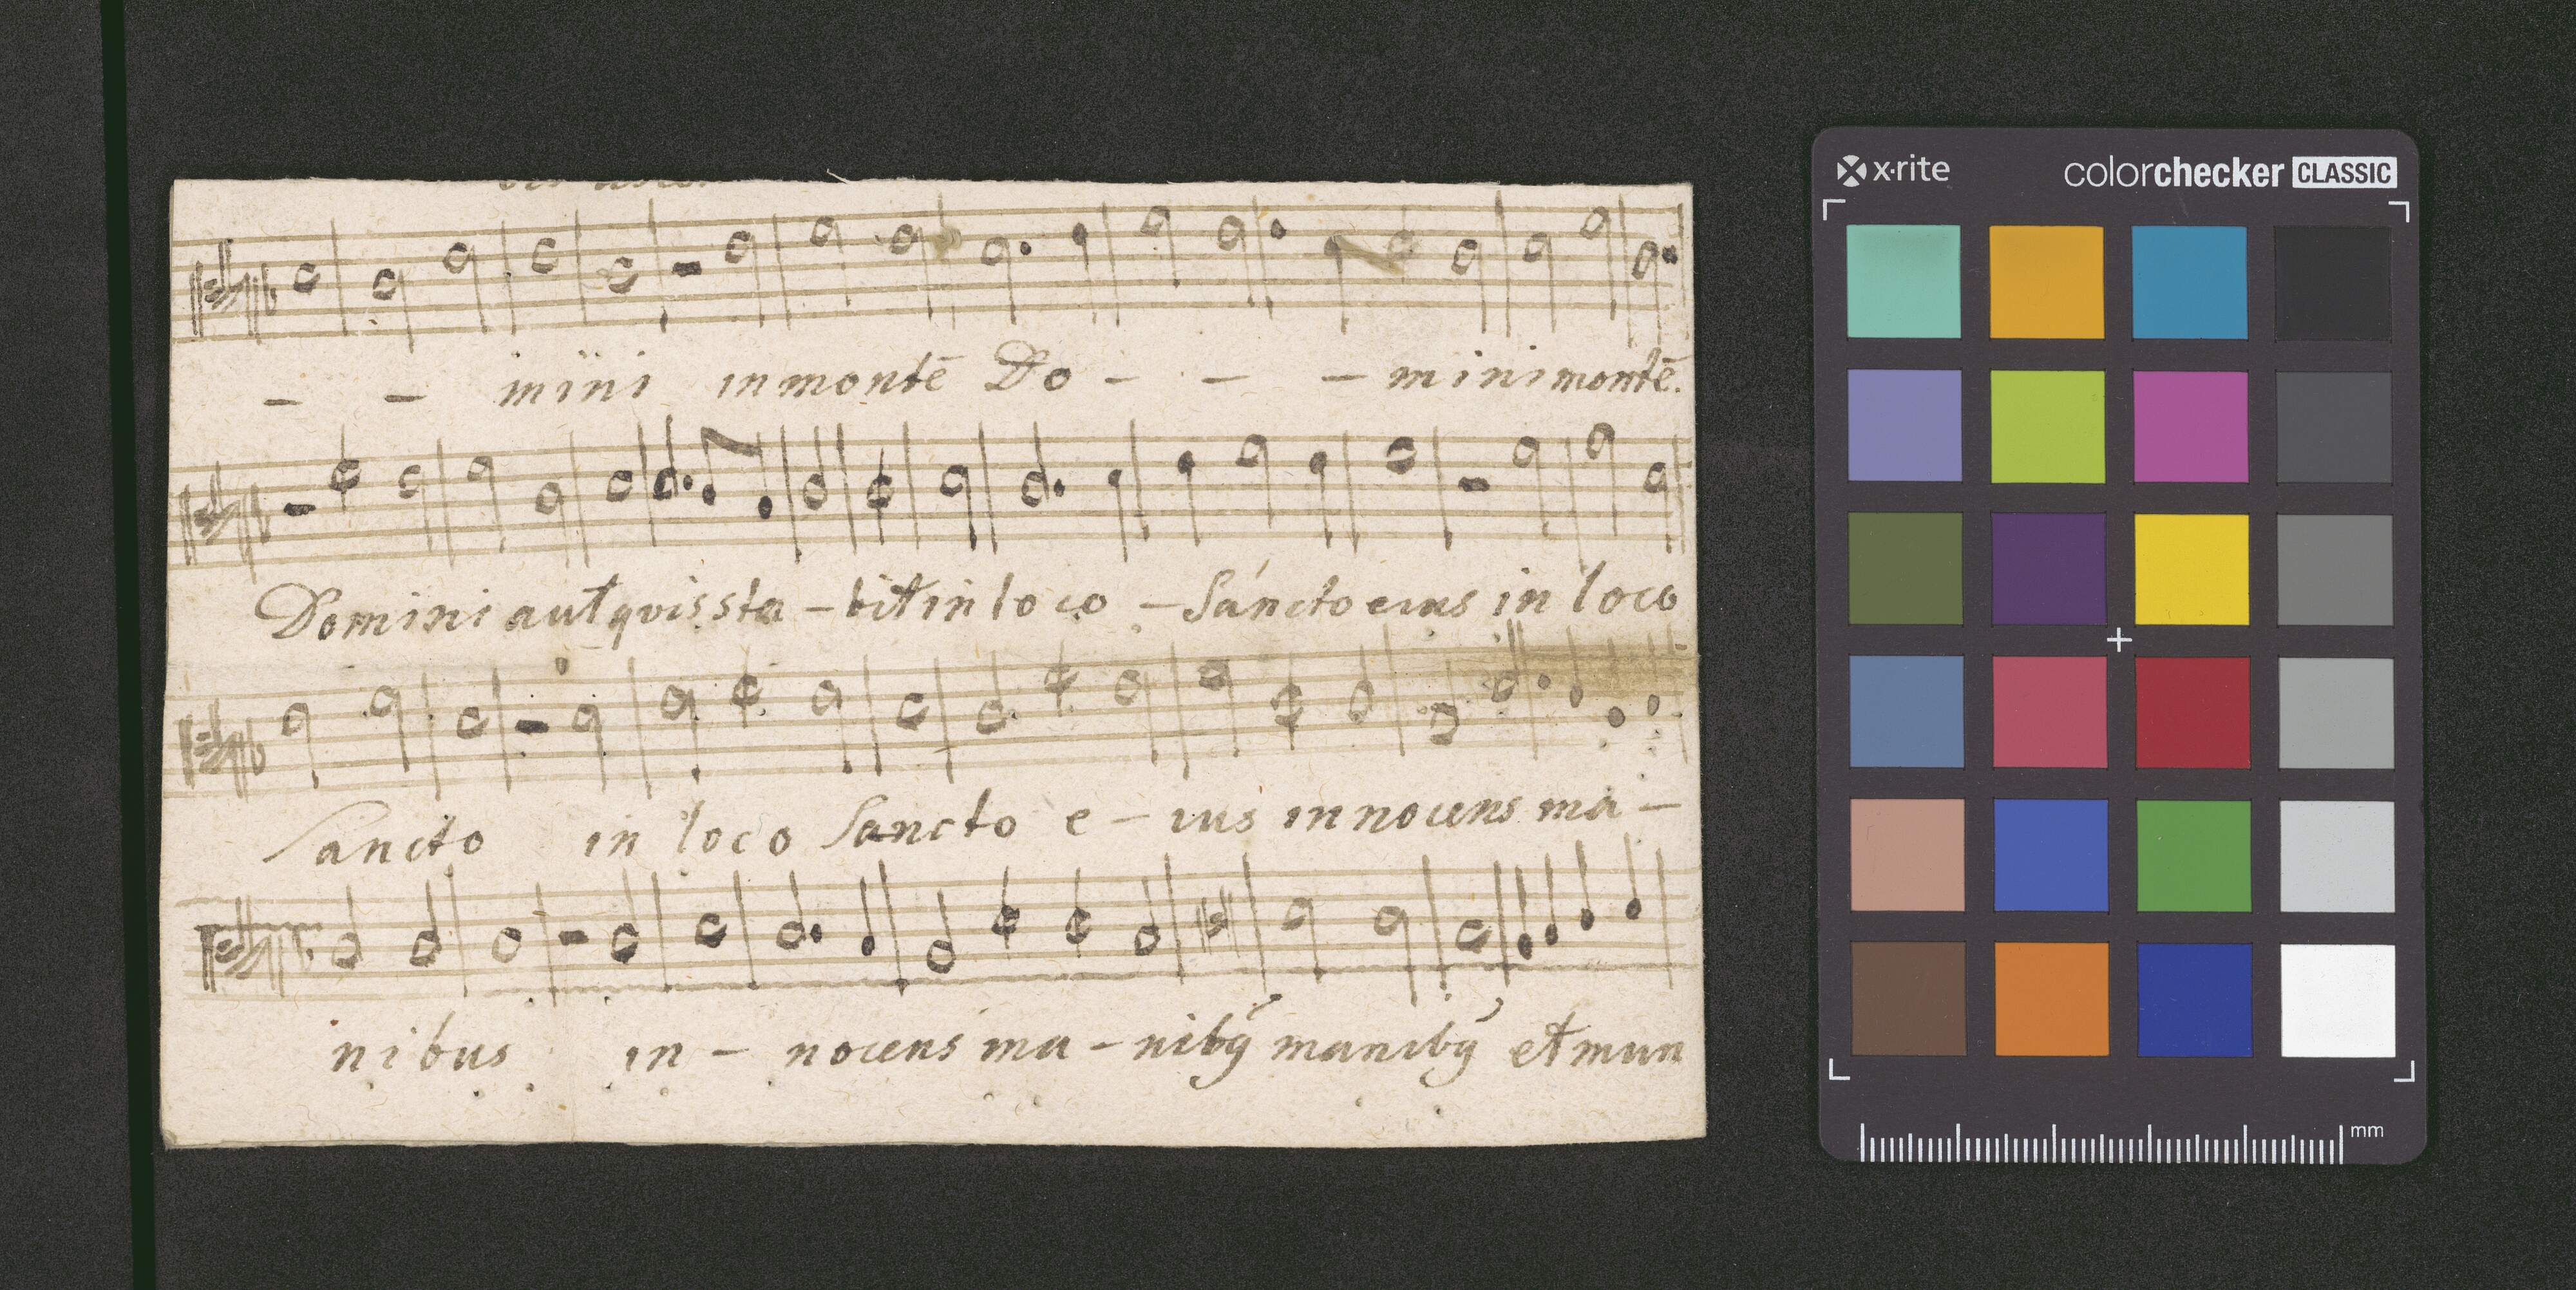 - - mini in montē Do - - - mini montē.
Domini aut quis sta - bit in loco - Sáncto eius in loco
Sancto in loco Sancto e - ius innocens ma -
nibus in - nocens ma - nibꝯ manibꝯ et mun
x·rite colorchecker CLASSIC
mm